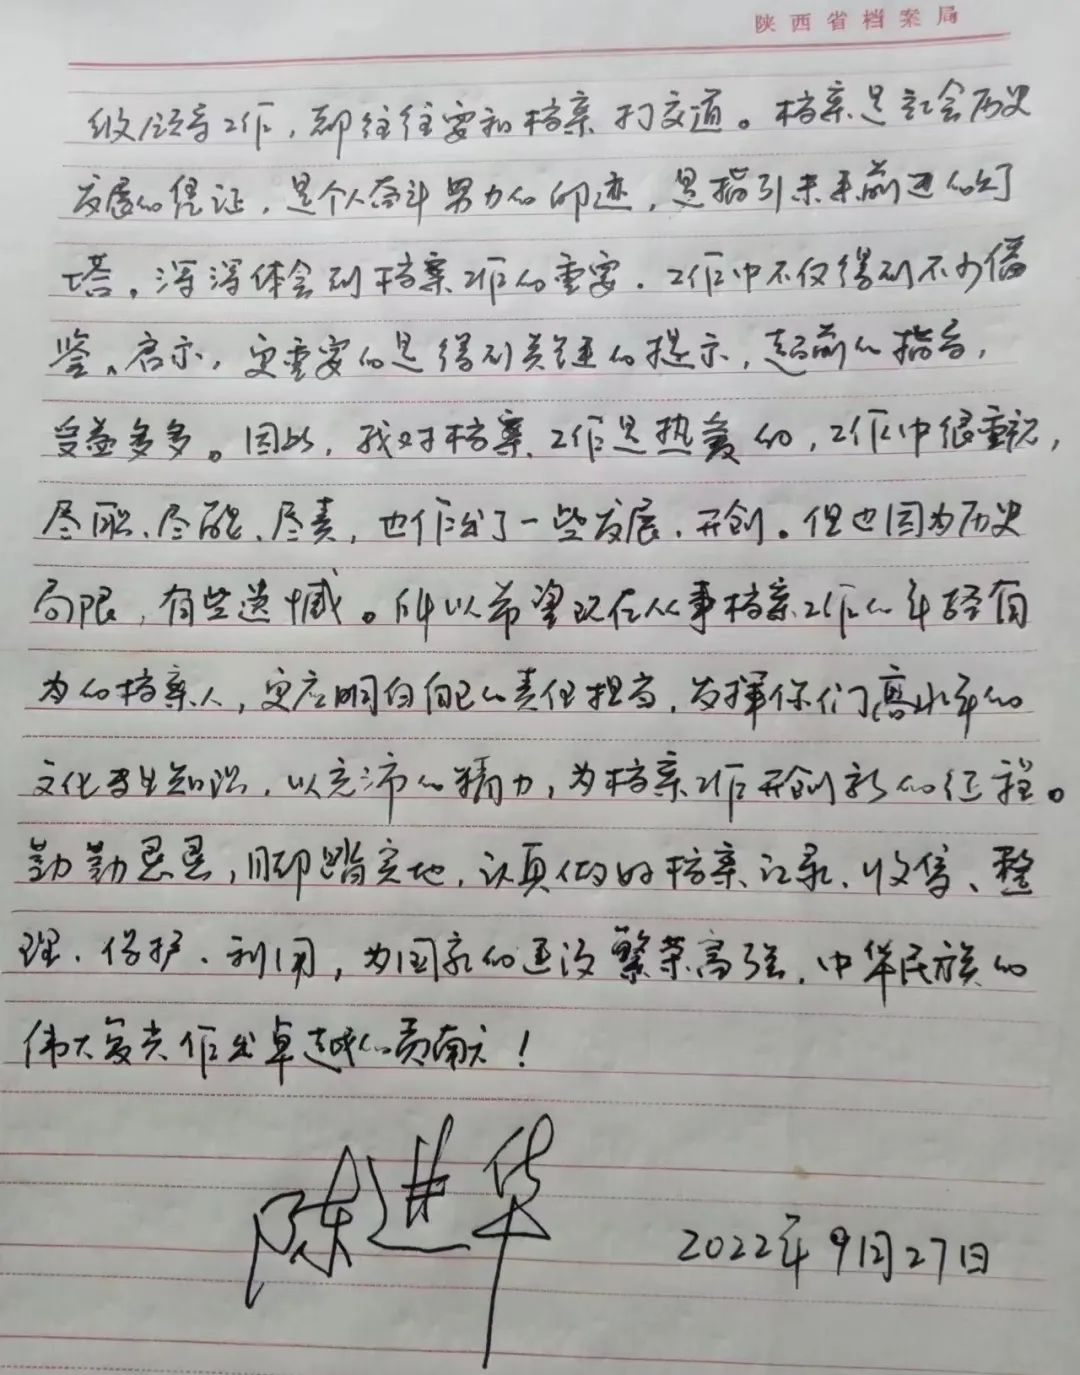 陕西省档案局
级领导工作，却往往要和档案打交道。档案是社会历史
发展的凭证，是个人奋斗努力的印迹，是指引未来前进的灯
塔，深深体会到档案工作的重要．工作中不仅得到不少借
鉴、启示，更重要的是得到关键的提示，超前的指导，
受益多多。因此，我对档案工作是热爱的，工作中很重视，
尽职、尽能、尽责，也作出了一些发展、开创。但也因为历史
局限，有些遗憾。所以希望现在从事档案工作的年轻有
为的档案人，更应明白自己的责任担当，发挥你们高水平的
文化专业知识，以充沛的精力，为档案工作开创新的征程。
勤勤恳恳，脚踏实地，认真做好档案记录、收集、整
理、保护、利用，为国家的建设繁荣富强，中华民族的
伟大复兴作出卓越的贡献！
陈进华
2022年9月27日